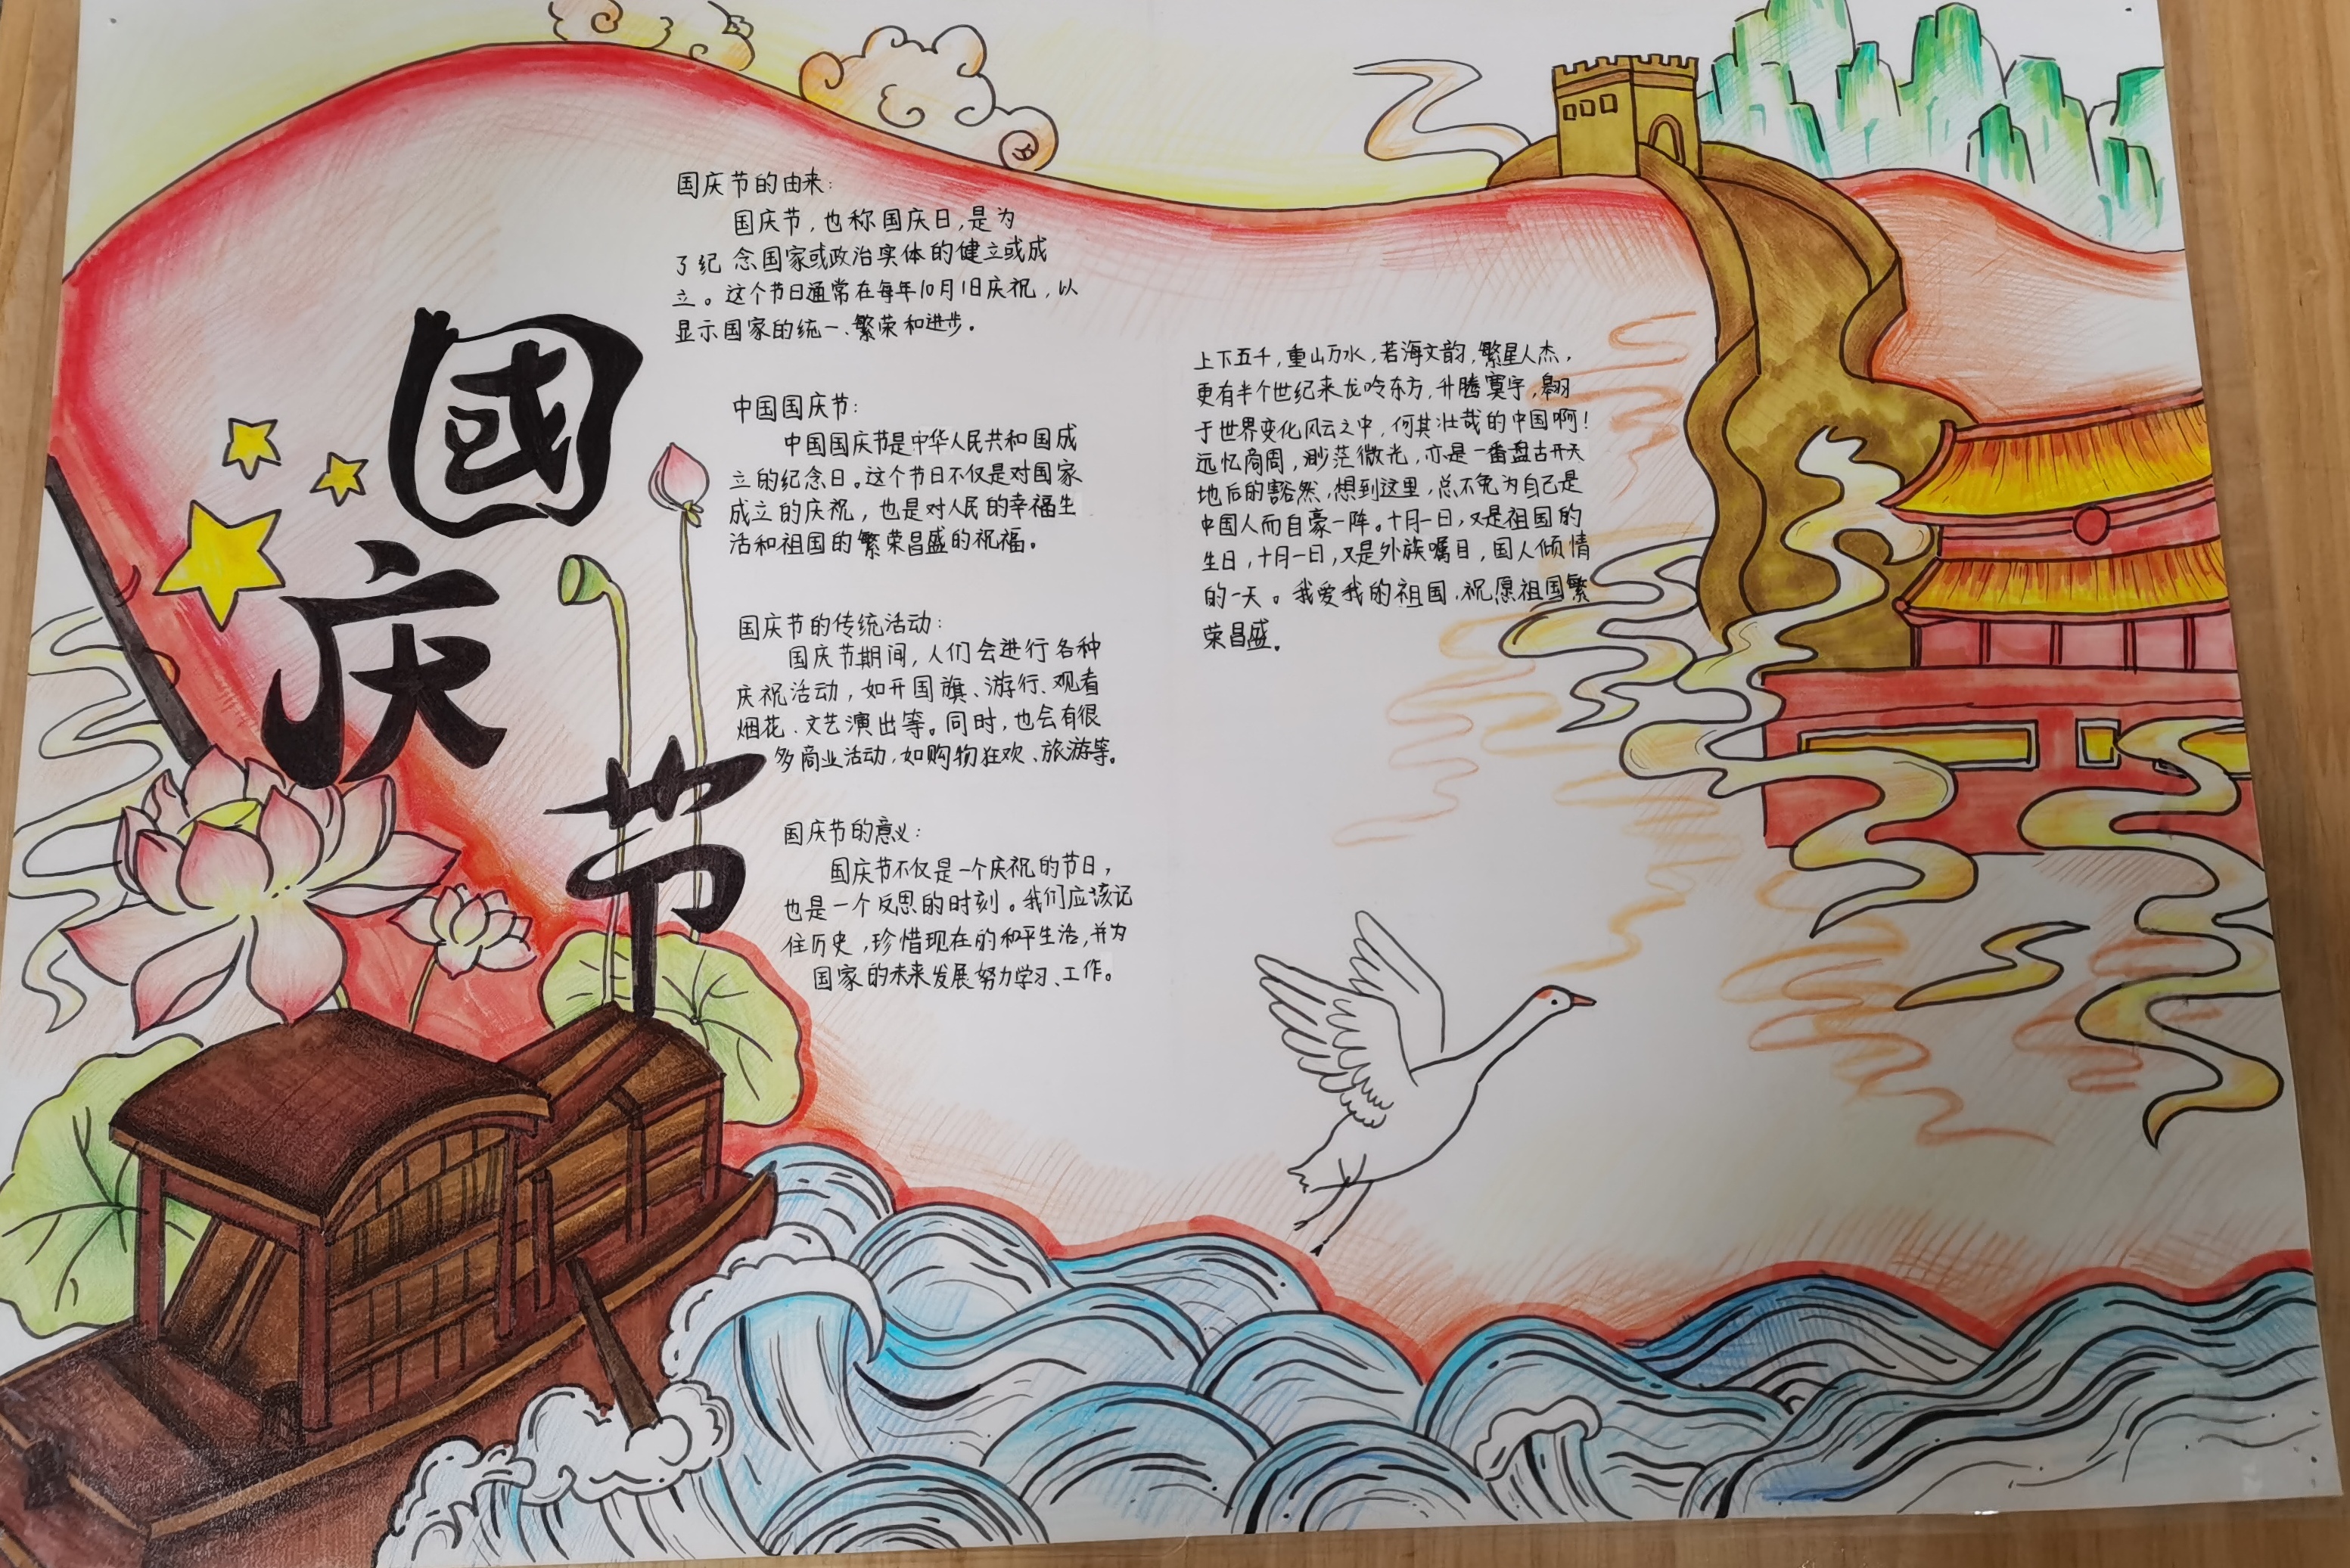 國
庆
节
国庆节的由来:
国庆节,也称国庆日,是为
了纪念国家或政治实体的健立或成
立。这个节日通常在每年10月1日庆祝,以
显示国家的统一、繁荣和进步。
中国国庆节:
中国国庆节是中华人民共和国成
立的纪念日。这个节日不仅是对国家
成立的庆祝,也是对人民的幸福生
活和祖国的繁荣昌盛的祝福。
国庆节的传统活动:
国庆节期间,人们会进行各种
庆祝活动,如开国旗、游行、观看
烟花、文艺演出等。同时,也会有很
多商业活动,如购物狂欢、旅游等。
国庆节的意义:
国庆节不仅是一个庆祝的节日,
也是一个反思的时刻。我们应该记
住历史,珍惜现在的和平生活,并为
国家的未来发展努力学习、工作。
上下五千,重山万水,若海文韵,繁星人杰,
更有半个世纪来龙吟东方,升腾寰宇,翱
于世界变化风云之中,何其壮哉的中国啊!
远忆商周,渺茫微光,亦是一番盘古开天
地后的豁然,想到这里,总不免为自己是
中国人而自豪一阵。十月一日,又是祖国的
生日,十月一日,又是外族嘱目,国人倾情
的一天。我爱我的祖国,祝愿祖国繁
荣昌盛。